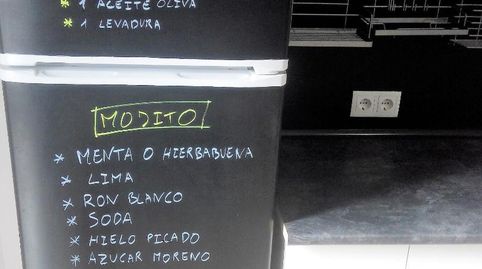 * 1 ACEITE OLIVA
* 1 LEVADURA
MOJITO
* MENTA O HIERBABUENA
* LIMA
* RON BLANCO
* SODA
* HIELO PICADO
* AZUCAR MORENO